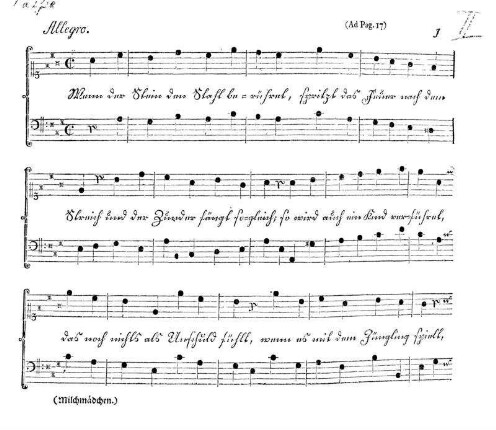 Allegro. (Ad Pag. 17) 1 II
Wenn der Stein den Stahl be=rühret, spritzt das Feuer nach dem
Streich und der Zunder fängt sogleich, so wird auch ein Kind verführet,
das noch nichts als Unschuld fühlt, wenn es mit dem Jüngling spielt,
(Milchmädchen.)